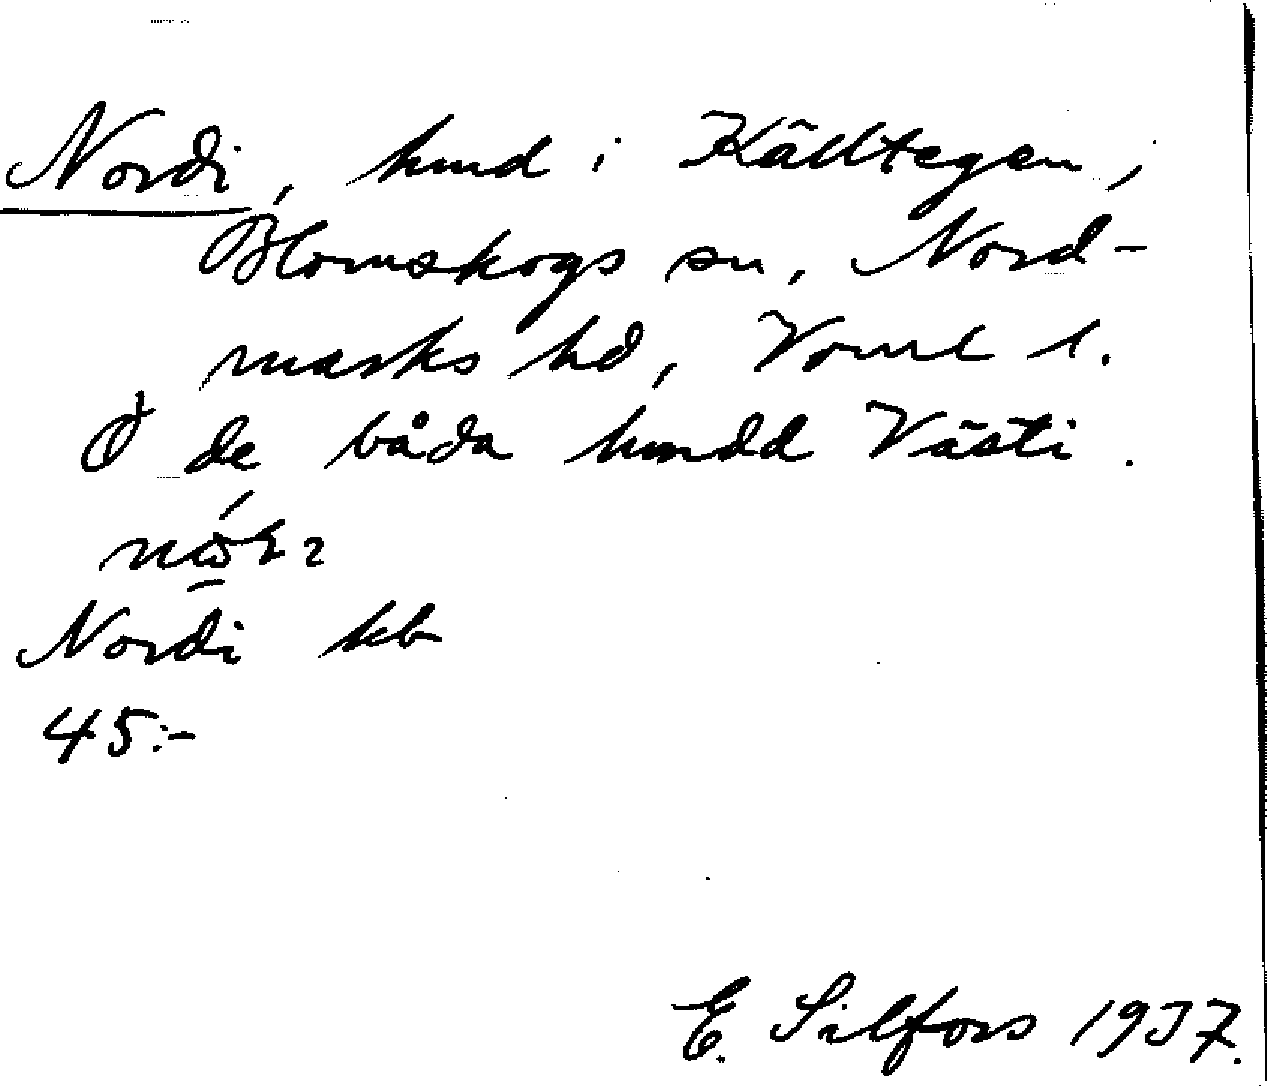 Nordi, hmd i Källtegen,
Blomskogs sn, Nord-
marks hd, Vrml l.
O de båda hmdd Västi.
Nordi kb
45:-
E. Silfors 1937.